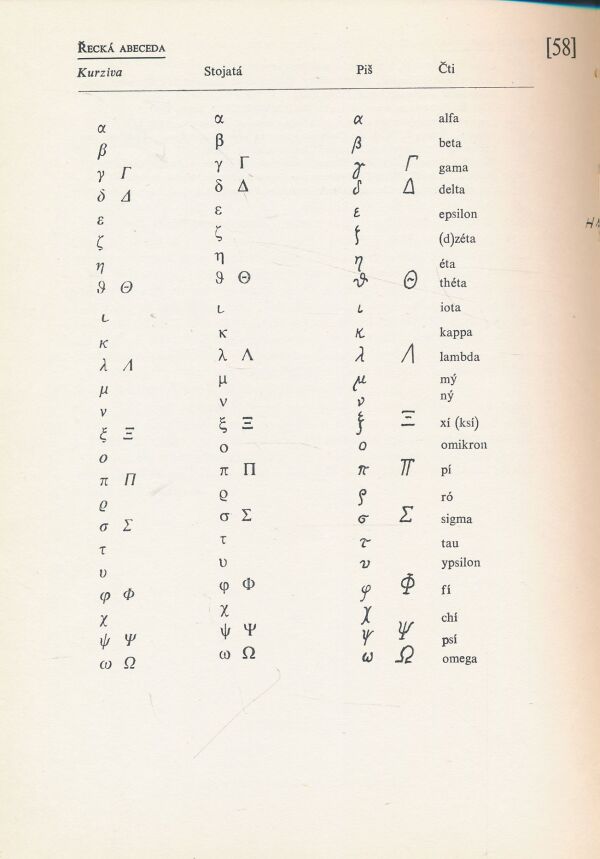 ŘECKÁ ABECEDA
[58]
Kurziva Stojatá Piš Čti
α α α alfa
β β β beta
γ Γ γ Γ γ Γ gama
δ Δ δ Δ δ Δ delta
ε ε ε epsilon
ζ ζ ζ (d)zéta
η η η éta
ϑ Θ ϑ Θ ϑ Θ théta
ι ι ι iota
κ κ κ kappa
λ Λ λ Λ λ Λ lambda
μ μ μ mý
ν ν ν ný
ξ Ξ ξ Ξ ξ Ξ xí (ksí)
ο ο ο omikron
π Π π Π π Π pí
ϱ ϱ ρ ró
σ Σ σ Σ σ Σ sigma
τ τ τ tau
υ υ υ ypsilon
φ Φ φ Φ φ Φ fí
χ χ χ chí
ψ Ψ ψ Ψ ψ Ψ psí
ω Ω ω Ω ω Ω omega